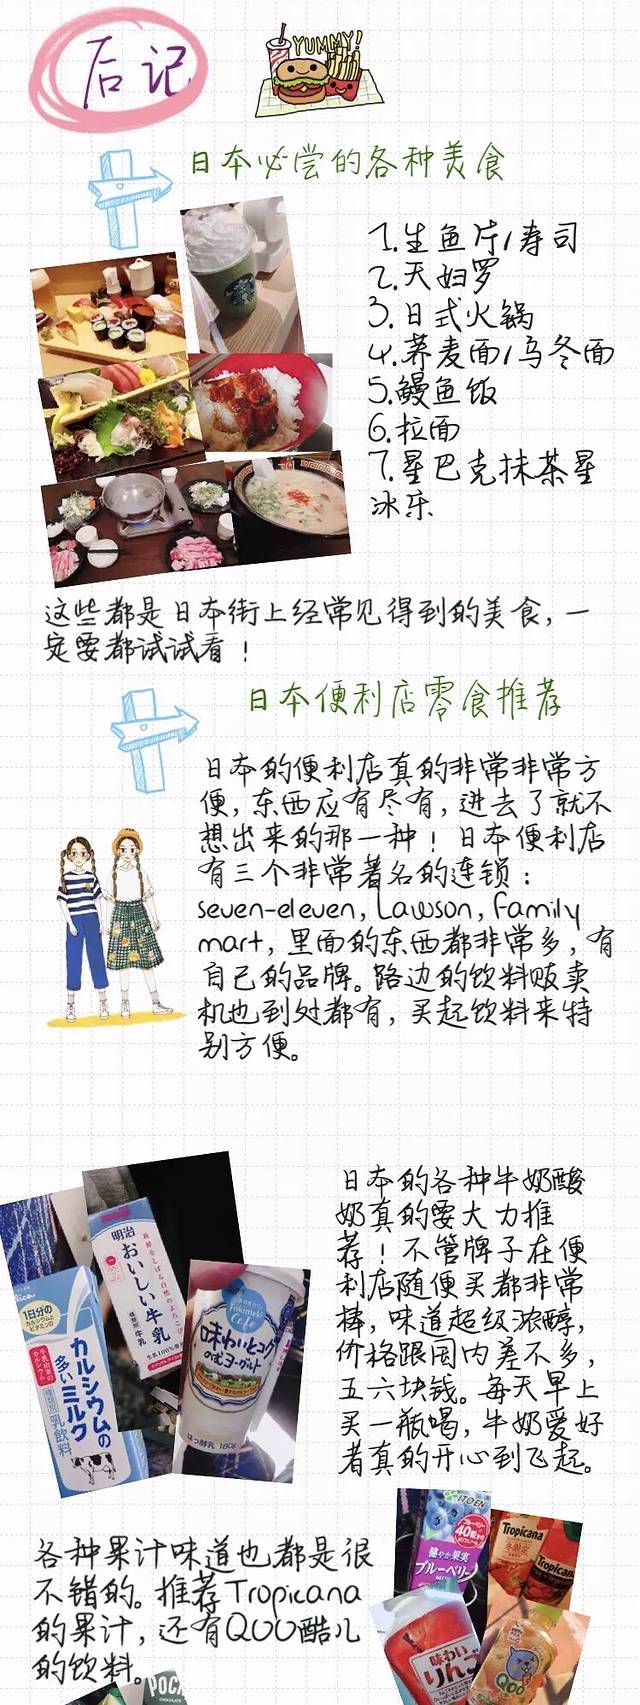 后记
YUMMY!
日本必尝的各种美食
1.生鱼片/寿司
2.天妇罗
3.日式火锅
4.荞麦面/乌冬面
5.鳗鱼饭
6.拉面
7.星巴克抹茶星
冰乐
这些都是日本街上经常见得到的美食,一
定要都试试看!
日本便利店零食推荐
日本的便利店真的非常非常方
便,东西应有尽有,进去了就不
想出来的那一种!日本便利店
有三个非常著名的连锁:
seven-eleven, Lawson, family
mart,里面的东西都非常多,有
自己的品牌。路边的饮料贩卖
机也到处都有,买起饮料来特
别方便。
日本的各种牛奶酸
奶真的要大力推
荐!不管牌子在便
利店随便买都非常
棒,味道超级浓醇,
价格跟国内差不多,
五六块钱。每天早上
买一瓶喝,牛奶爱好
者真的开心到飞起。
明治
おいしい牛乳
1日分の
カルシウムの
多いミルク
乳飲料
味わいとコク
のむヨーグルト
はっ酵乳 180g
各种果汁味道也都是很
不错的。推荐Tropicana
的果汁,还有QOO酷儿
的饮料。
ITOEN
健やか果実
ブルーベリー
Tropicana
Tropicana
味わい
りんご
Qoo